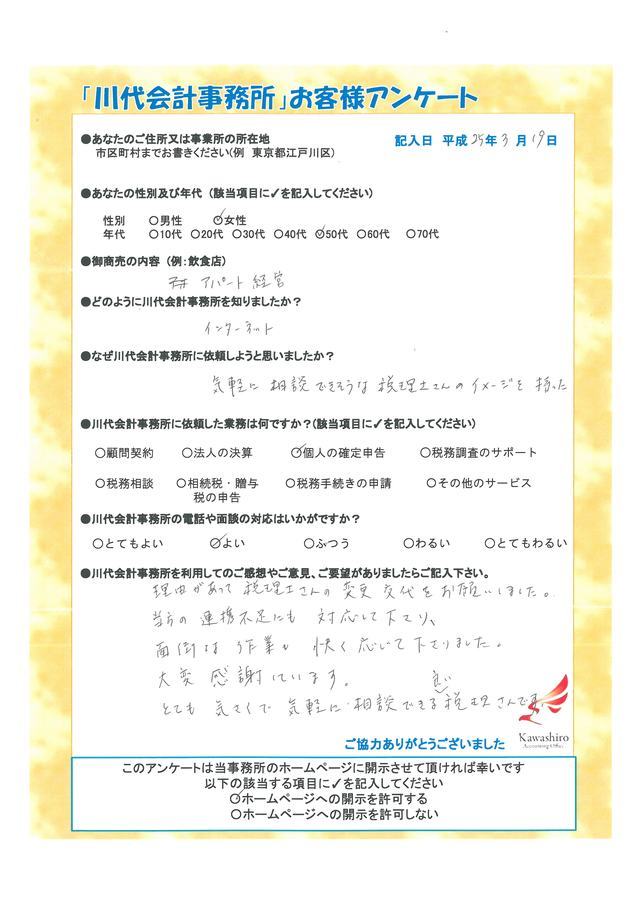 「川代会計事務所」お客様アンケート
●あなたのご住所又は事業所の所在地
市区町村までお書きください(例 東京都江戸川区)
記入日 平成25年3月19日
●あなたの性別及び年代 (該当項目に✓を記入してください)
性別 ○男性 ○女性
年代 ○10代 ○20代 ○30代 ○40代 ○50代 ○60代 ○70代
●御商売の内容 (例:飲食店)
アパート経営
●どのように川代会計事務所を知りましたか?
インターネット
●なぜ川代会計事務所に依頼しようと思いましたか?
気軽に相談できそうな税理士さんのイメージを持った
●川代会計事務所に依頼した業務は何ですか?(該当項目に✓を記入してください)
○顧問契約 ○法人の決算 ○個人の確定申告 ○税務調査のサポート
○税務相談 ○相続税・贈与 ○税務手続きの申請 ○その他のサービス
税の申告
●川代会計事務所の電話や面談の対応はいかがですか?
○とてもよい ○よい ○ふつう ○わるい ○とてもわるい
●川代会計事務所を利用してのご感想やご意見、ご要望がありましたらご記入下さい。
理由があって税理士さんの変更交代をお願いしました。
当方の連携不足にも対応して下さり、
面倒な作業も快く応じて下さりました。
大変感謝しています。
とても気さくで気軽に相談できる良い税理士さんです。
Kawashiro
Accounting Office
ご協力ありがとうございました
このアンケートは当事務所のホームページに開示させて頂ければ幸いです
以下の該当する項目に✓を記入してください
○ホームページへの開示を許可する
○ホームページへの開示を許可しない